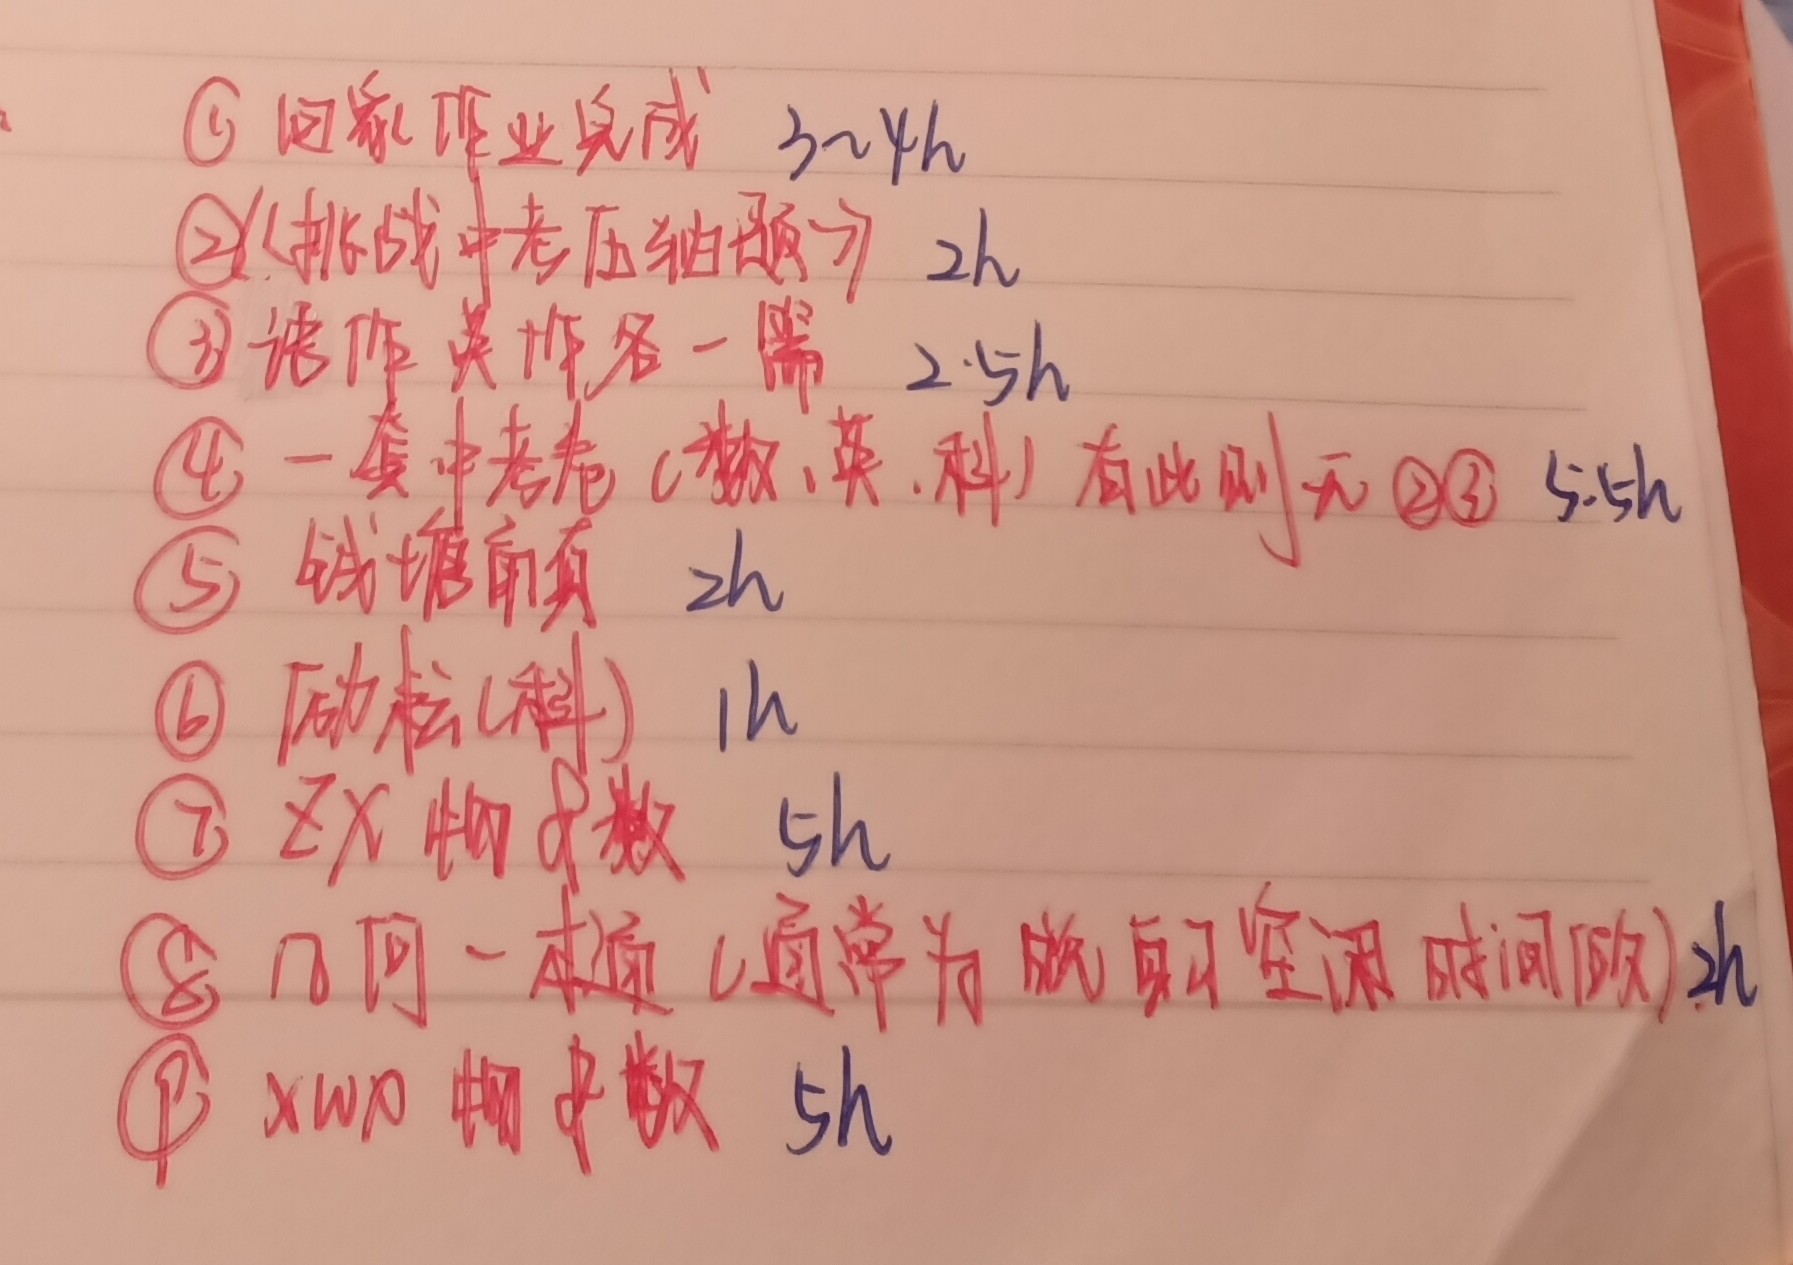 ① 回家作业完成 3~4h
②《挑战中考压轴题》 2h
③ 语作英作各一篇 2.5h
④ 一套中考卷(数、英、科)有此则无②③ 5.5h
⑤ 钱塘甬真 2h
⑥ 励松(科) 1h
⑦ ZX 物中数 5h
⑧ 几何一本通(通常为晚自习空闲时间做) 2h
⑨ XWP 物中数 5h